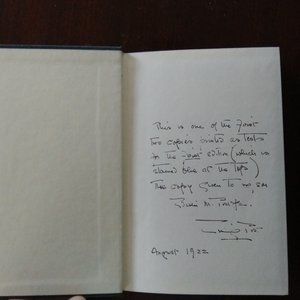 This is one of the First
two copies printed as tests
for the first edition (which is
stained blue at the top)
This copy given to my son
M.
August 1922